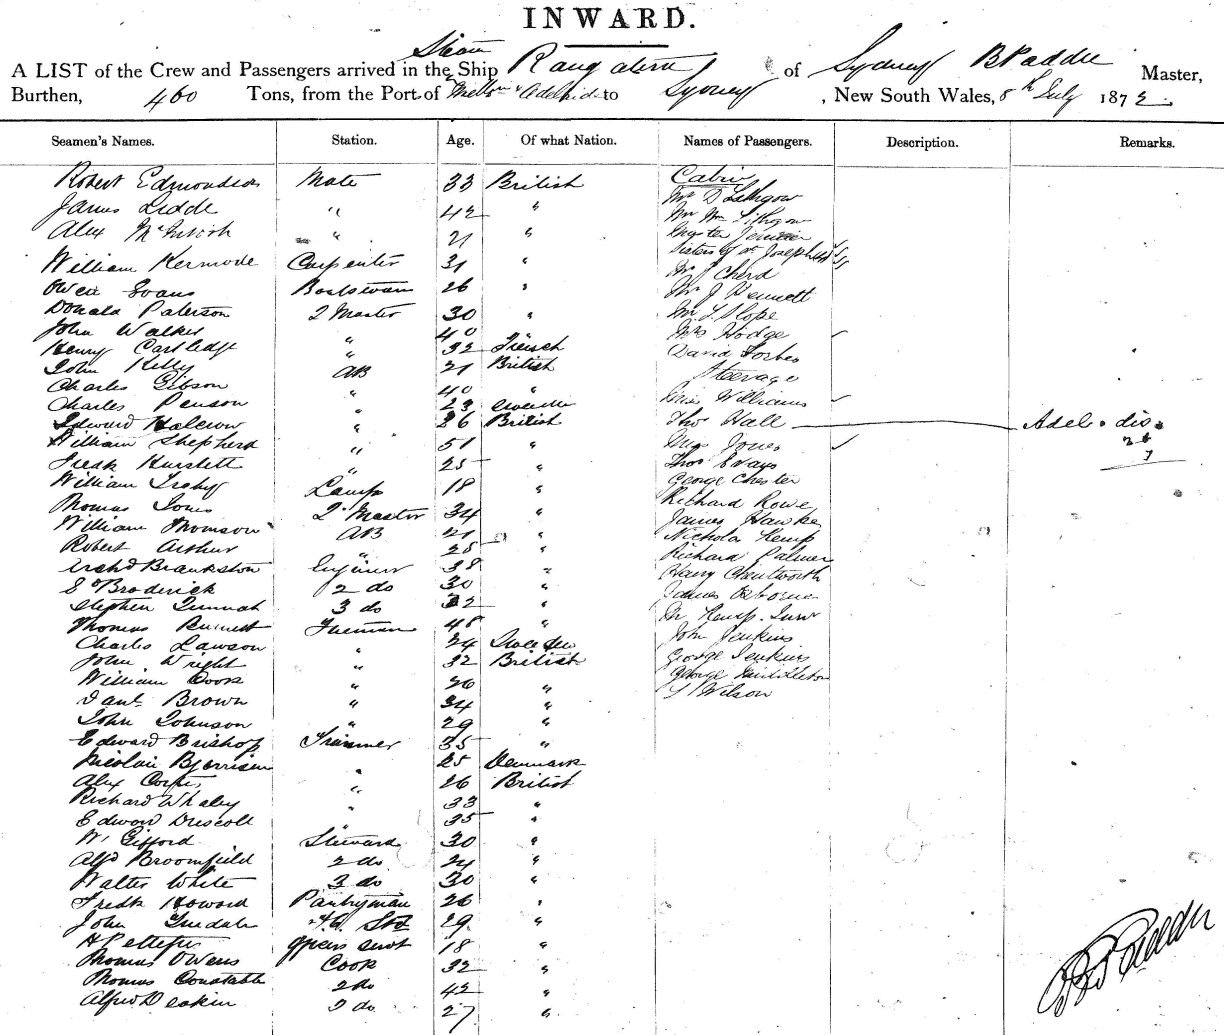 INWARD.
Steam
A LIST of the Crew and Passengers arrived in the Ship Rangatira of Sydney B Paddle Master,
Burthen, 460 Tons, from the Port of Melbn & Adelaide to Sydney, New South Wales, 8th July 1872
Seamen's Names. Station. Age. Of what Nation. Names of Passengers. Description. Remarks.
Robert Edmondson Mate 33 British Cabin
James Liddle " 42 " Mr D Lithgow
Alex McIntosh " 21 " Mr Wm Lithgow
William Kermode Carpenter 31 " Sisters of St Joseph
Owen Evans Boatswain 26 " Mr J Cherd
Donald Paterson 2 Master 30 " Mr J Bennett
John Walker " 40 Mr T Slope
Henry Cartledge " 32 French Mrs Hodge
John Kelly AB 21 British David Forbes
Charles Gibson " 40 " Steerage
Charles Penson " 23 Sweden Miss Williams
Edward Halcrow " 26 British Thos Hall Adel. dis.
William Shepherd " 51 " Miss Jones
Fredk " 25 " Thos Evans
William Lamps 18 " George Chester
Thomas Jones 2 Master 34 " Richard Rowe
William Thomson AB 21 " James Hawke
Robert Arthur " 28 " Nichola Kemp
Archd Brankston Engineer 38 " Richard Palmer
S Broderick 2 do 30 " Henry Chentworth
Stephen 3 do 32 " James Osborne
Thomas Burnett Fireman 48 " Kemp Junr
Charles Lawson " 24 Sweden John Jenkins
John Wright " 32 British George Jenkins
William Cook " 26 " George Middleton
Danl Brown " 34 " T Wilson
John Johnson " 29 "
Edward Brishop Trimmer 35 "
Nicolai Bjerrisen " 25 Denmark
Alex " 26 British
Richard Whaley " 33 "
Edward Driscoll " 35 "
W. Gifford Steward 30 "
Alfd Broomfield 2 do 24 "
Walter White 3 do 30 "
Fredk Howard Pantryman 26 "
John 29 "
H Pettefer officers servt 18 "
Thomas Owens Cook 32 "
Thomas Constable 2 do 42 "
Alfred Deakin 3 do 27 "